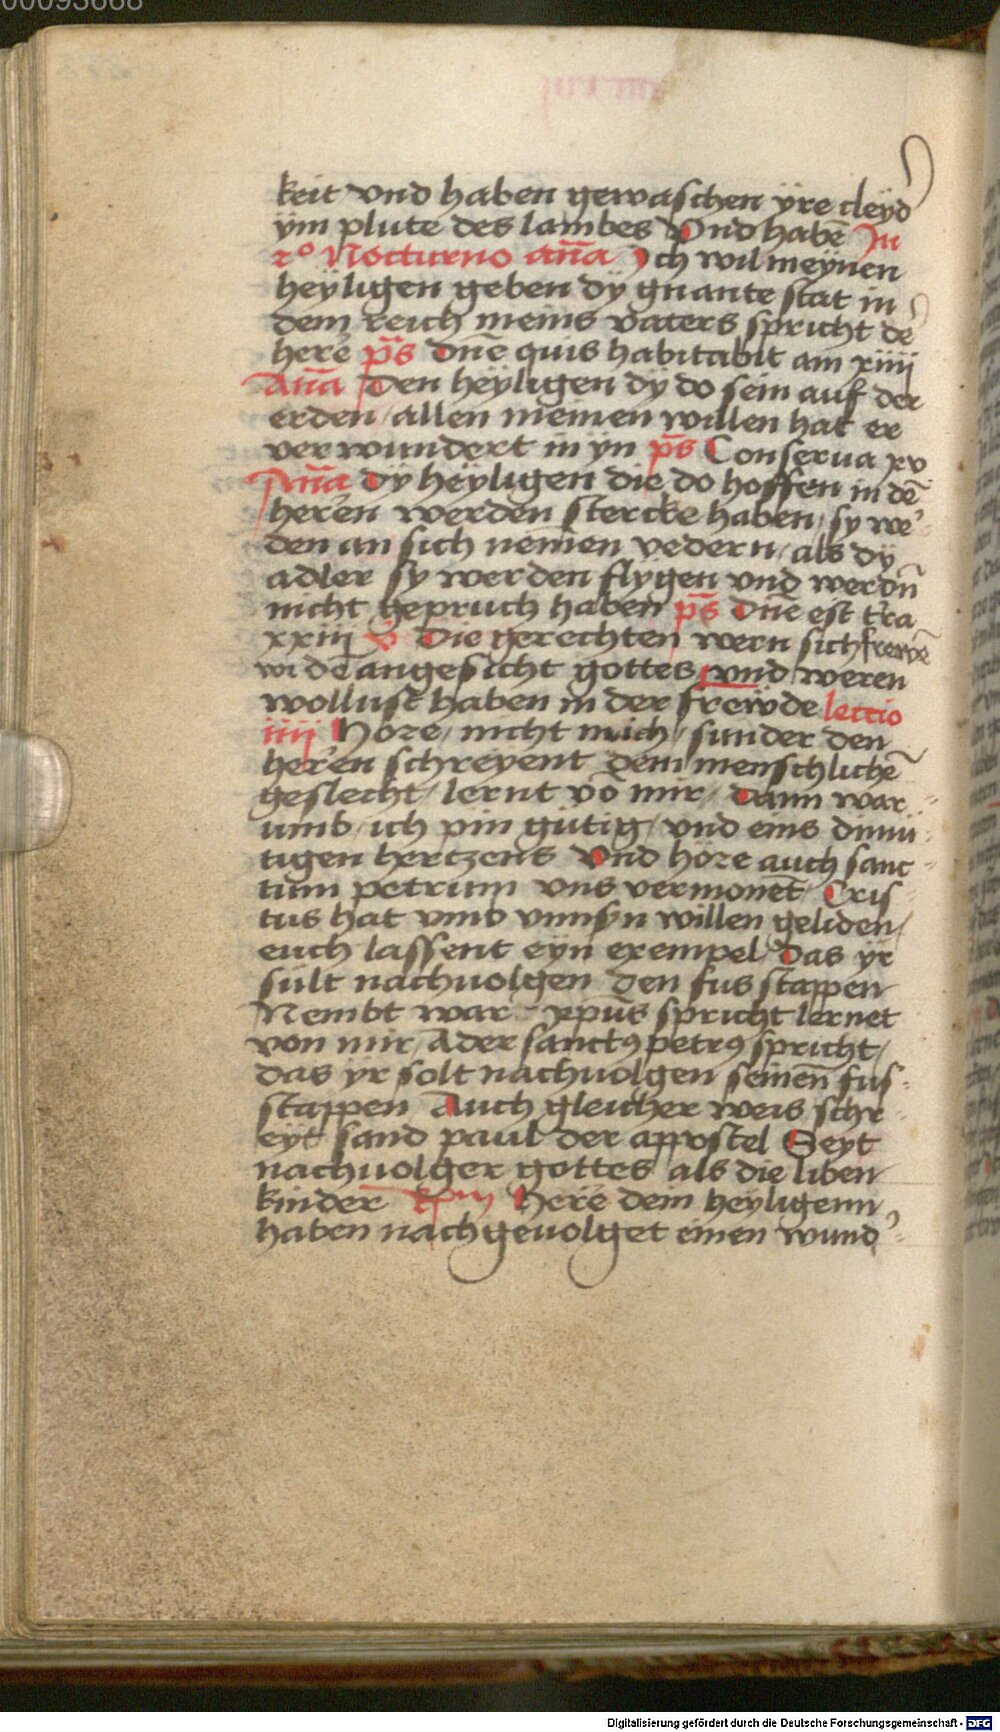 00093668
keit vnd haben gewaschen ÿre cleyd
ÿm plute des lambes Vnd habē In
2º Nocturno an̄a Ich wil meynen
heyligen geben dy gnante stat in
dem reich meins vaters spricht de
here ps̄ Dn̄e quis habitabit am xiiij
An̄a Den heyligen dy do sein auf der
erden / allen meinen willen hat er
verwundert in yn ps̄ Conserua xv
An̄a Dy heyligen die do hoffen in dē
heren werden stercke haben / sy we
den an sich nemen vedern / als dy
adler sy werden flygen vnd werdn̄
nicht gepruch haben ps̄ Dn̄e est tra
xxiij v̄ Die gerechten wern sich frewē
wi dē angesicht gottes vnd weren
wollust haben in der frewde lectio
iiij Hore / nicht mich / sunder den
heren schreyent dem menschlichē
geslecht / lernt vō mir / Dann war
umb / ich pin gütig / vnd eins dimü
tigen hertzens Vnd höre auch sanc
tum petrum vns vermonet Cris
tus hat vmb vnnsyn willen geliden /
euch lassent eyn exempel Das yr
sült nachuolgen den fus stappen
Nembt war xp̄us spricht lernet
von mir / Ader sanctꝰ petrꝰ spricht /
das yr solt nachuolgen seinen̄ fus
stappen Auch gleicher weis schr
eyt sand paul der appostel Seyt
nachuolger gottes als die liben
kinder Here dem heyligenn
haben nach geuolget einen wund
Digitalisierung gefördert durch die Deutsche Forschungsgemeinschaft - DFG